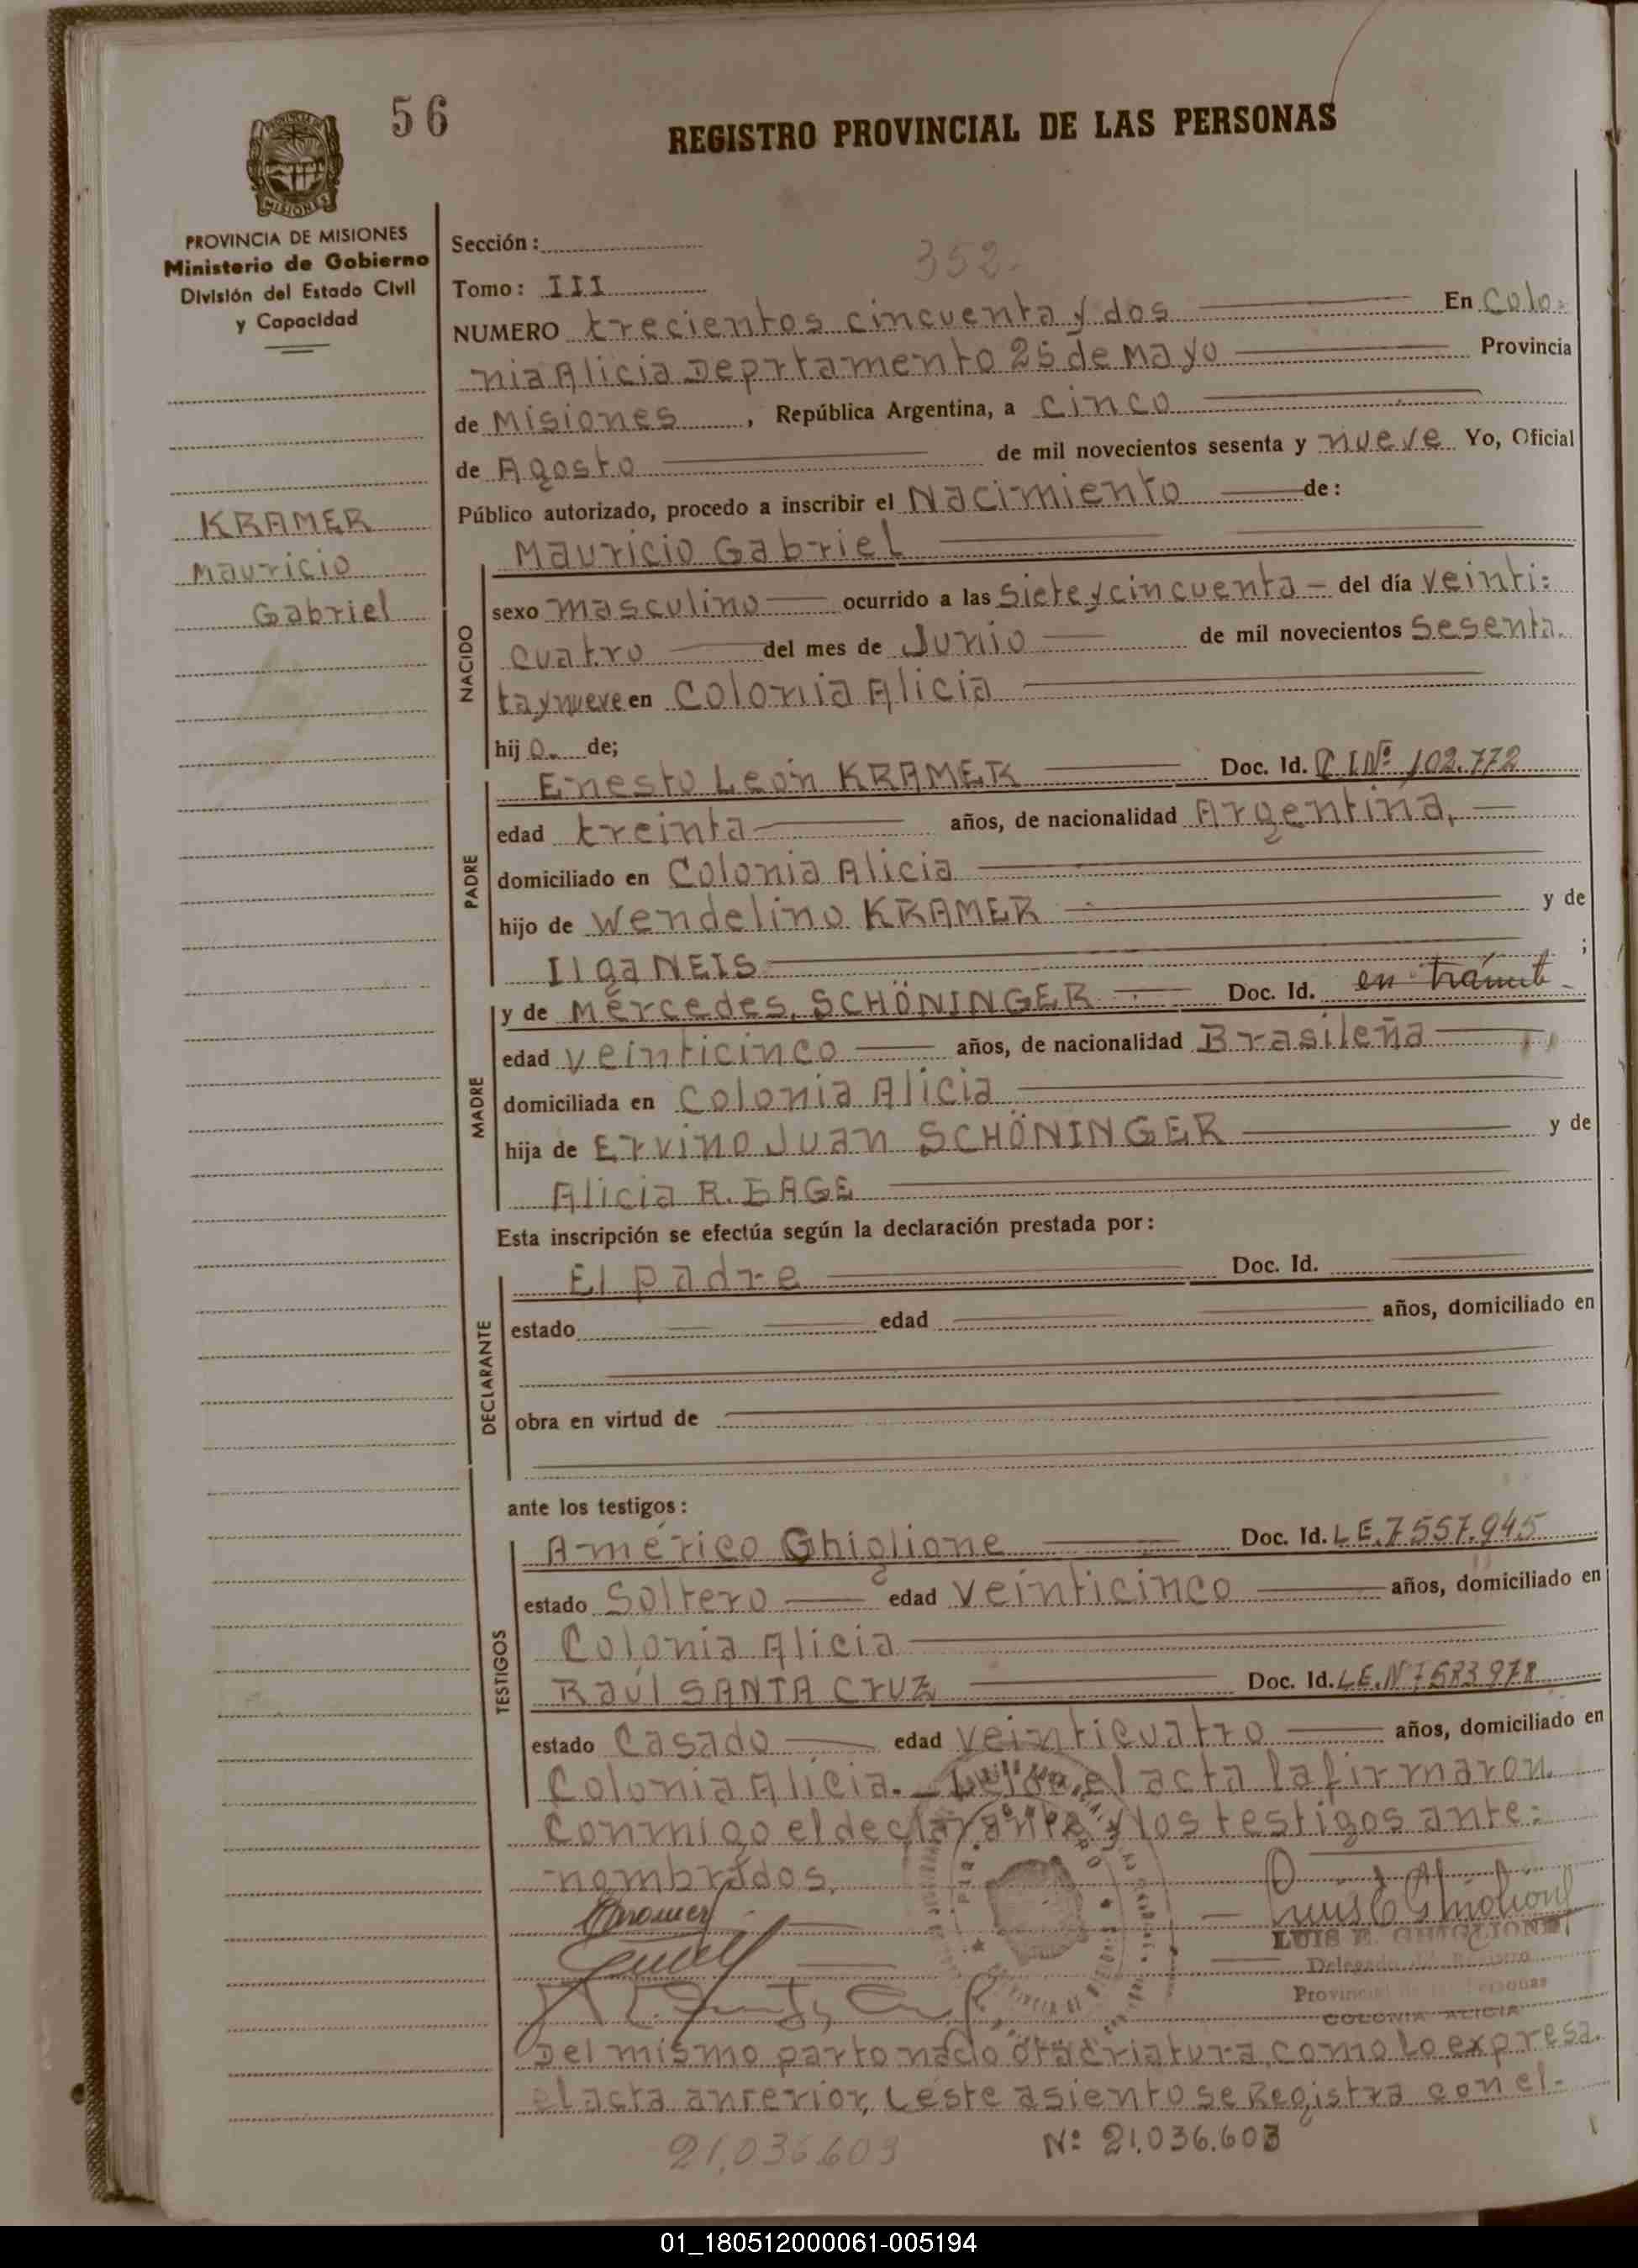 56
REGISTRO PROVINCIAL DE LAS PERSONAS
MISIONES
PROVINCIA DE MISIONES
Ministerio de Gobierno
División del Estado Civil
y Capacidad
KRAMER
Mauricio
Gabriel
Sección:
352.
Tomo: III
NUMERO trecientos cincuenta y dos En Colo=
nia Alicia Deprtamento 25 de Mayo Provincia
de Misiones, República Argentina, a cinco
de Agosto de mil novecientos sesenta y nueve Yo, Oficial
Público autorizado, procedo a inscribir el Nacimiento de:
Mauricio Gabriel
NACIDO
sexo masculino ocurrido a las siete y cincuenta del día veinti=
cuatro del mes de Junio de mil novecientos sesenta
ta y nueve en Colonia Alicia
hijo. de;
PADRE
Ernesto León KRAMER Doc. Id. C.I.Nº 102.772
edad treinta años, de nacionalidad Argentina,
domiciliado en Colonia Alicia
hijo de Wendelino KRAMER y de
Ilga NEIS ;
MADRE
y de Mercedes, SCHÖNINGER Doc. Id. en trámite
edad veinticinco años, de nacionalidad Brasileña
domiciliada en Colonia Alicia
hija de Ervino Juan SCHÖNINGER y de
Alicia R.
Esta inscripción se efectúa según la declaración prestada por:
DECLARANTE
El padre Doc. Id.
estado edad años, domiciliado en
obra en virtud de
ante los testigos:
TESTIGOS
Américo Ghiglione Doc. Id. L E. 7557.945
estado Soltero edad veinticinco años, domiciliado en
Colonia Alicia
Raúl SANTA CruZ Doc. Id. L.E.N 7583978
estado Casado edad veinticuatro años, domiciliado en
Colonia Alicia. Leída el acta la firmaron
conmigo el declarante y los testigos ante=
nombrados.
Kramer
LUIS E. GHIGLIONE
Delegado del Registro
Provincial de las Personas
COLONIA ALICIA
Del mismo parto nacio otra criatura, como lo expresa
el acta anterior, este asiento se Registra con el-
21.036.603 Nº 21.036.603
01_180512000061-005194